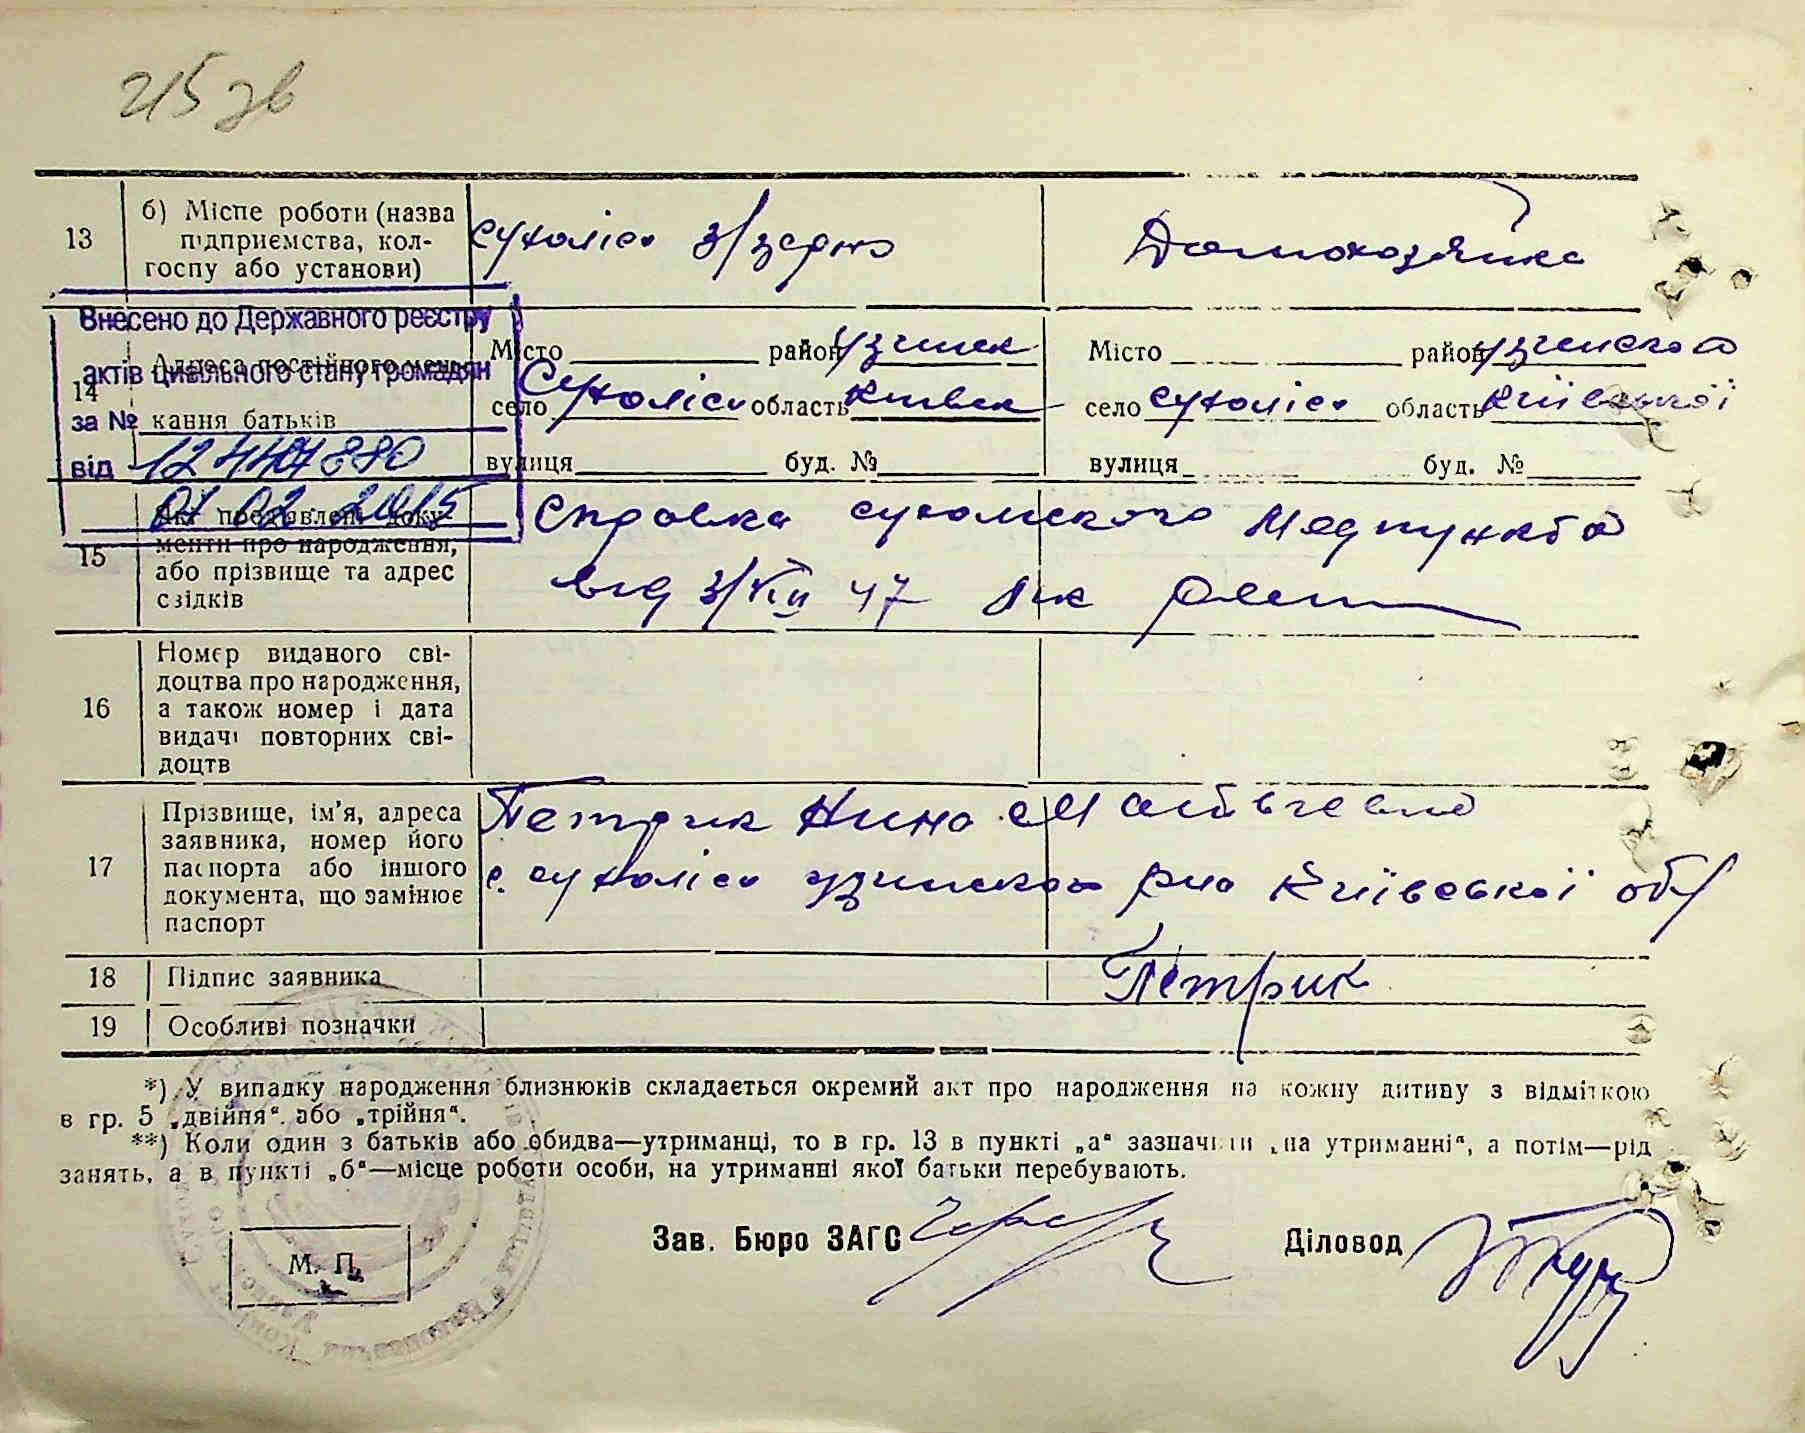 215 зв
13
б) Місце роботи (назва
підприємства, кол-
госпу або установи)
Сухоліси з/зерно
Домохозяйка
Внесено до Державного реєстру
актів цивільного стану громадян
за №
від
07 02 2015
14
Адреса постійного меш-
кання батьків
Місто район Узинск
село Сухоліси область Київск
вулиця буд. №
Місто район Узинского
село Сухоліси область Київської
вулиця буд. №
15
Які пред'явлені доку-
менти про народження,
або прізвище та адрес
свідків
Справка сухоліского Медпункта
від 3/VIII 47
16
Номер виданого сві-
доцтва про народження,
а також номер і дата
видачі повторних сві-
доцтв
17
Прізвище, ім'я, адреса
заявника, номер його
паспорта або іншого
документа, що замінює
паспорт
Петрик Нина Матвіевна
с. Сухоліси Узинского р-но Київської обл
18
Підпис заявника
Петрик
19
Особливі позначки
*) У випадку народження близнюків складається окремий акт про народження на кожну дитину з відміткою
в гр. 5 „двійня“ або „трійня“.
**) Коли один з батьків або обидва—утриманці, то в гр. 13 в пункті „а“ зазначити „на утриманні“, а потім—рід
занять, а в пункті „б“—місце роботи особи, на утриманні якої батьки перебувають.
М. П.
Зав. Бюро ЗАГС
Діловод